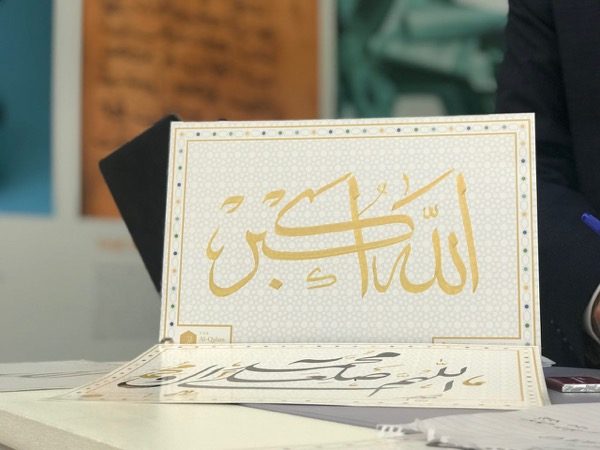 الله أكبر
Al-Qalam
اللهم صل على محمد وآل محمد